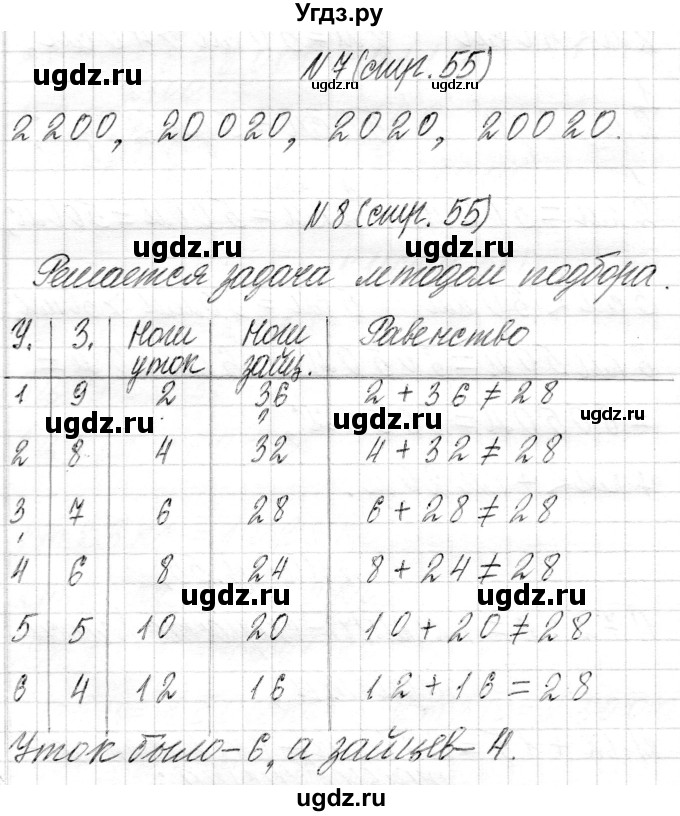 Угдз.ру
N 7 (стр. 55)
ugdz.ru ugdz.ru ugdz.ru
2200, 20020, 2020, 20020.
N 8 (стр. 55)
ugdz.ru ugdz.ru
Решается задача методом подбора.
У. З. Ноги уток Ноги зайц. Равенство
1 9 2 36 2 + 36 ≠ 28
ugdz.ru ugdz.ru ugdz.ru
2 8 4 32 4 + 32 ≠ 28
3 7 6 28 6 + 28 ≠ 28
4 6 8 24 8 + 24 ≠ 28
ugdz.ru ugdz.ru
5 5 10 20 10 + 20 ≠ 28
6 4 12 16 12 + 16 = 28
Уток было - 6, а зайцев - 4.
ugdz.ru